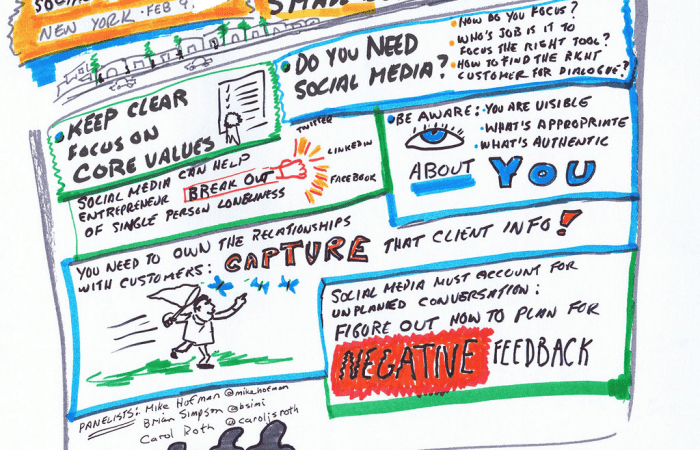 NEW YORK · FEB 9.
• DO YOU NEED
SOCIAL MEDIA?
• HOW DO YOU FOCUS?
• WHO'S JOB IS IT TO
FOCUS THE RIGHT TOOL?
• HOW TO FIND THE RIGHT
CUSTOMER FOR DIALOGUE?
• KEEP CLEAR
FOCUS ON
CORE VALUES
SOCIAL MEDIA CAN HELP
ENTREPRENEUR BREAK OUT
OF SINGLE PERSON LONELINESS
TWITTER
LINKEDIN
FACEBOOK
• BE AWARE: • YOU ARE VISIBLE
• WHAT'S APPROPRIATE
• WHAT'S AUTHENTIC
ABOUT YOU
YOU NEED TO OWN THE RELATIONSHIPS
WITH CUSTOMERS: CAPTURE THAT CLIENT INFO!
SOCIAL MEDIA MUST ACCOUNT FOR
UNPLANNED CONVERSATION:
FIGURE OUT HOW TO PLAN FOR
NEGATIVE FEEDBACK
PANELISTS: Mike Hofman @mikehofman
Brian Simpson @bsimi
Carol Roth @caroljsroth